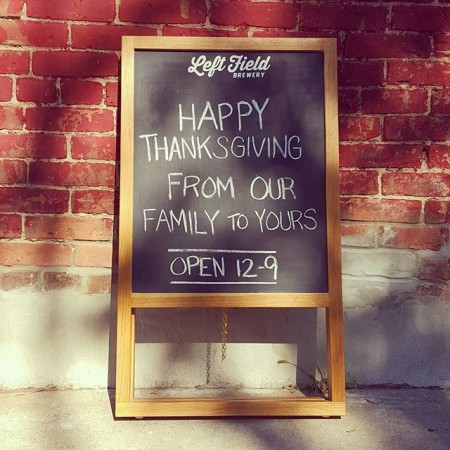 Left Field
BREWERY
HAPPY
THANKSGIVING
FROM OUR
FAMILY TO YOURS
OPEN 12-9